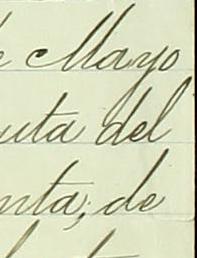 e Mayo
uta del
nta, de